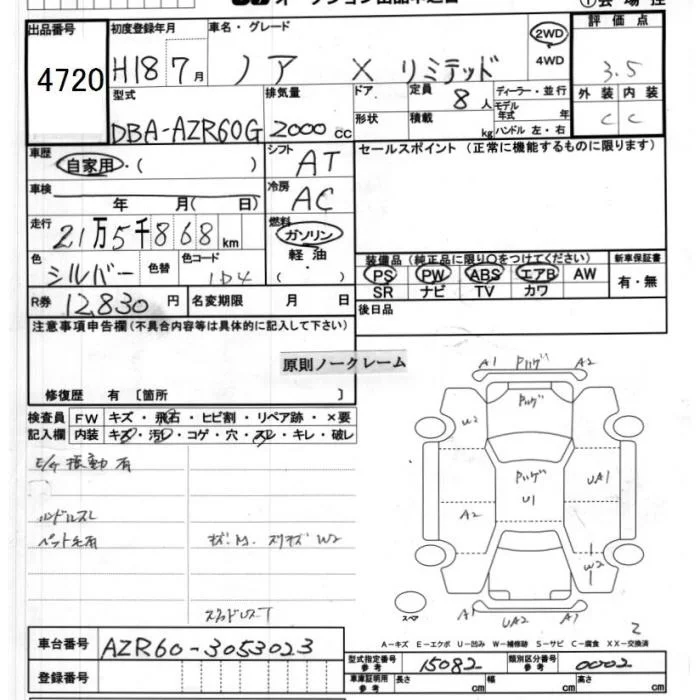 出品番号
4720
初度登録年月
H18 7月
車名・グレード
ノア X リミテッド
2WD
4WD
評価点
3.5
型式
DBA-AZR60G
排気量
2000 cc
ドア
形状
定員
8人
積載
kg
ディーラー・並行
モデル
年式 年
ハンドル 左・右
外装 内装
C C
車歴
自家用・( )
シフト
AT
セールスポイント (正常に機能するものに限ります)
車検
年 月( 日)
冷房
AC
走行
21万5千868km
燃料
ガソリン
軽油
( )
色
シルバー
色替
色コード
1D4
装備品 (純正品に限り〇をつけてください)
PS PW ABS エアB AW
SR ナビ TV カワ
新車保証書
有・無
R券 12,830円
名変期限 月 日
後日品
注意事項申告欄(不具合内容等は具体的に記入して下さい)
原則ノークレーム
修復歴 有 〔箇所 〕
検査員 FW キズ・飛石・ヒビ割・リペア跡・×要
記入欄 内装 キズ・汚レ・コゲ・穴・スレ・キレ・破レ
振動有
ハンドルスレ
ペット毛有
W2
スタッドレスT
A1 A2
W2
UA1
U1
A2
W2
スペア
A1 UA2 A1
2
A-キズ E-エクボ U-凹み W-補修跡 S-サビ C-腐食 XX-交換済
車台番号
AZR60-3053023
登録番号
型式指定番号
参考
15082
類別区分番号
参考
0002
車庫証明用
参考
長さ cm 幅 cm 高さ cm